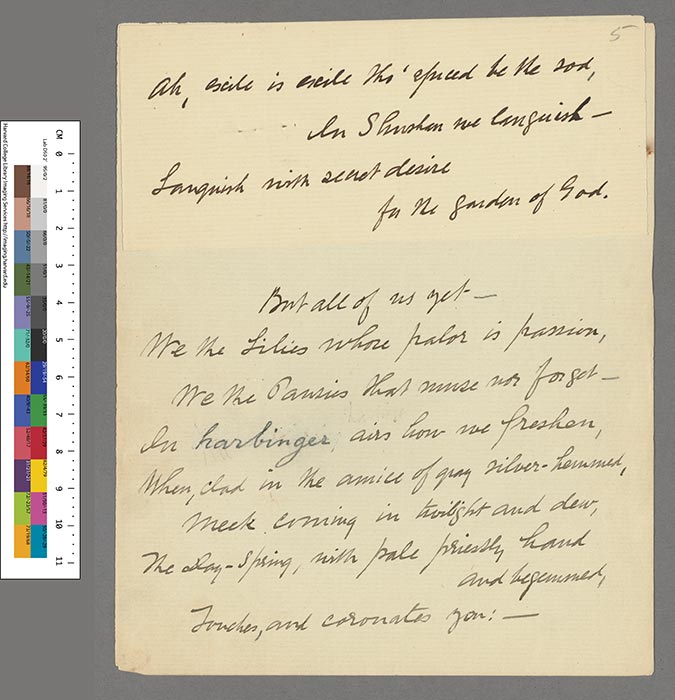 5
Ah, exile is exile tho' spiced be the sod,
In Shushan we languish—
Languish with secret desire
for the garden of God.
But all of us yet—
We the Lilies whose palor is passion,
We the Pansies that muse nor forget—
In harbinger airs how we freshen,
When, clad in the amice of gray silver-hemmed,
Meek coming in twilight and dew,
The Day-Spring, with pale priestly hand
and begemmed,
Touches, and coronates you:—
CM 0 1 2 3 4 5 6 7 8 9 10 11
Harvard College Library Imaging Services http://imaging.harvard.edu